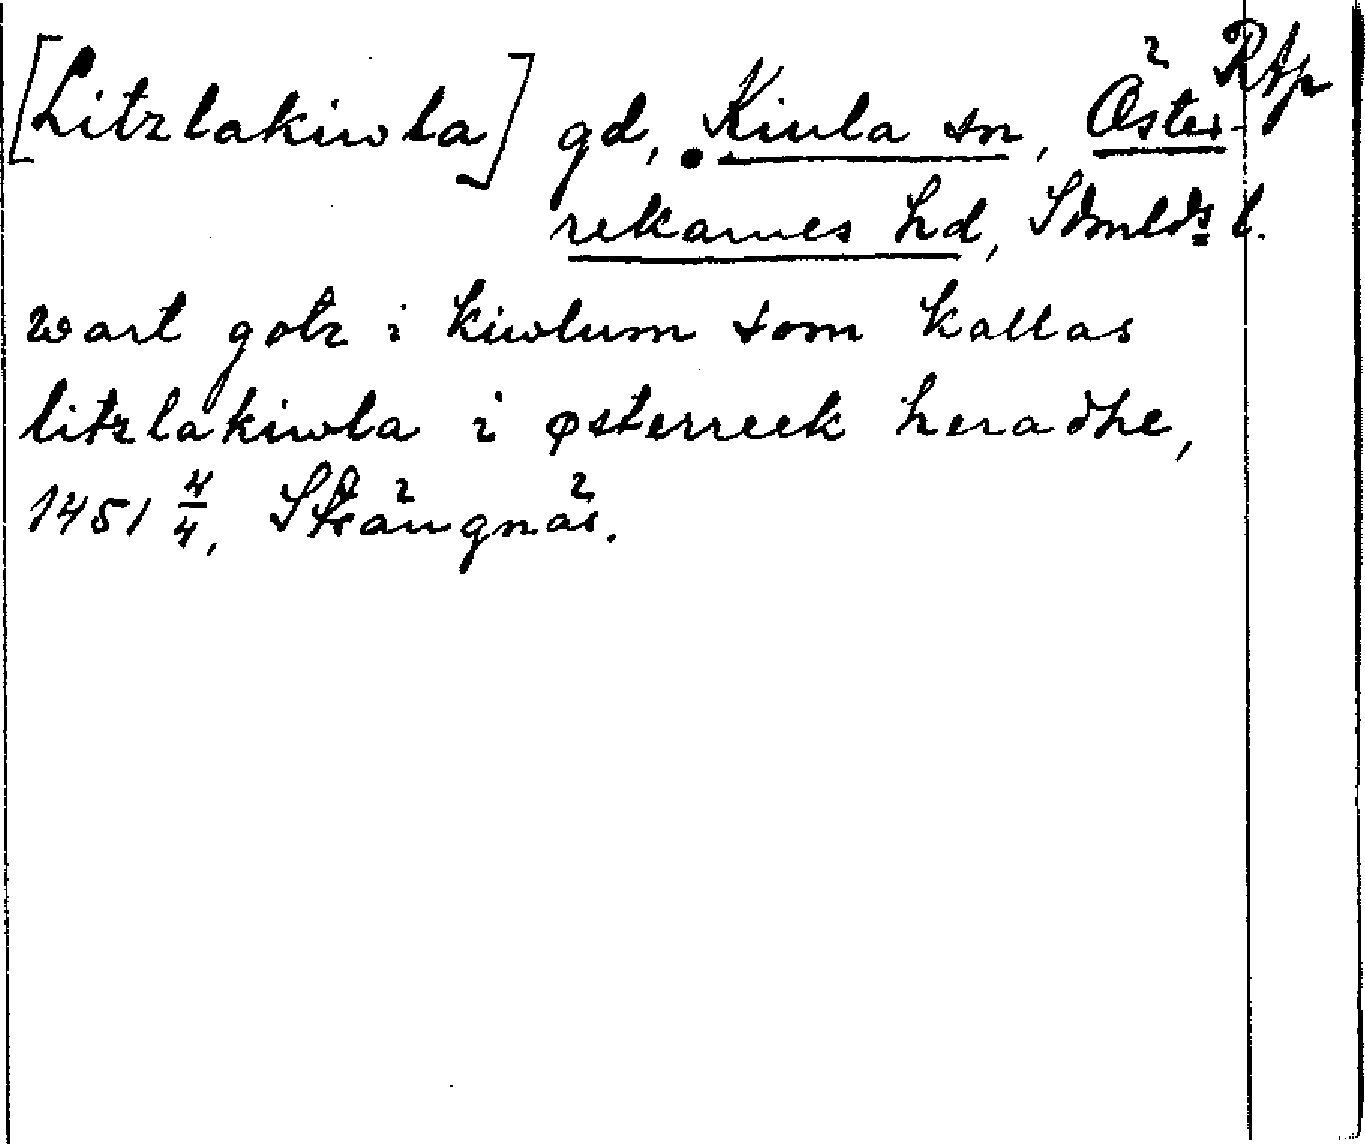 Rtp
[Litzlakiwla] gd, Kiula sn, Öster-
rekarnes hd, Sdmlds l.
wart gotz i kiwlum som kallas
litzlakiwla i østerreek heradhe,
1451 4/4, Strängnäs.